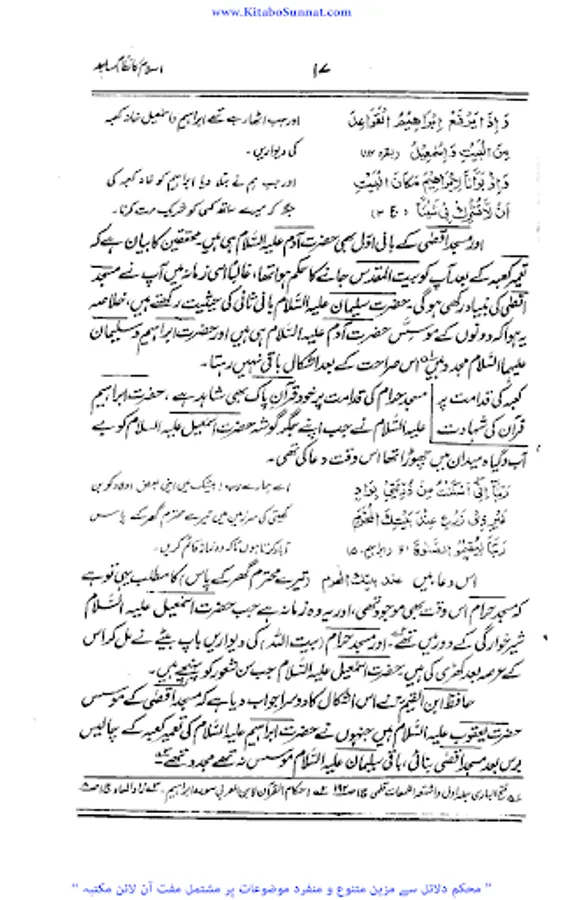 www.KitaboSunnat.com
اسلام کا نظام مساجد
۱۷
وَإِذْ يَرْفَعُ إِبْرَاهِيمُ الْقَوَاعِدَ اور جب اٹھا رہے تھے ابراہیم و اسمٰعیل خانہ کعبہ
مِنَ الْبَيْتِ وَإِسْمٰعِيلُ (بقرہ) کی دیواریں۔
وَإِذْ بَوَّأْنَا لِإِبْرَاهِيمَ مَكَانَ الْبَيْتِ اور جب ہم نے بتلا دیا ابراہیم کو خانہ کعبہ کی
أَنْ لَا تُشْرِكْ بِي شَيْئًا جگہ کہ میرے ساتھ کسی کو شریک مت کرنا۔
اور مسجد اقصٰی کے بانی اوّل بھی حضرت آدم علیہ السّلام ہی ہیں۔ محققین کا بیان ہے کہ
تعمیر کعبہ کے بعد آپ کو بیت المقدس جانے کا حکم ہوا تھا، غالباً اسی زمانہ میں آپ نے مسجد
اقصٰی کی بنیاد رکھی ہوگی۔ حضرت سلیمان علیہ السّلام بانی ثانی کی حیثیت رکھتے ہیں، خلاصہ
یہ ہوا کہ دونوں کے موسّس حضرت آدم علیہ السّلام ہی ہیں اور حضرت ابراہیم و سلیمان
علیہما السّلام مجدد ہیں اس صراحت کے بعد اشکال باقی نہیں رہتا۔
کعبہ کی قدامت پر مسجد حرام کی قدامت پر خود قرآن پاک بھی شاہد ہے، حضرت ابراہیم
قرآن کی شہادت علیہ السّلام نے جب اپنے جگر گوشہ حضرت اسمٰعیل علیہ السلام کو بے
آب و گیاہ میدان میں چھوڑا تھا اس وقت دعا کی تھی۔
رَبَّنَا إِنِّي أَسْكَنْتُ مِنْ ذُرِّيَّتِي بِوَادٍ اے ہمارے رب! بیشک میں اپنی بعض اولاد کو بن
غَيْرِ ذِي زَرْعٍ عِنْدَ بَيْتِكَ الْمُحَرَّمِ کھیتی کی سرزمین میں تیرے محترم گھر کے پاس
رَبَّنَا لِيُقِيمُوا الصَّلٰوةَ (ابراہیم) آباد کرتا ہوں تاکہ وہ نماز قائم کریں۔
اس دعا میں عند بیتک المحرم (تیرے محترم گھر کے پاس) کا مطلب یہی تو ہے
کہ مسجد حرام اس وقت بھی موجود تھی، اور یہ وہ زمانہ ہے جب حضرت اسمٰعیل علیہ السّلام
شیر خوارگی کے دور میں تھے۔ اور مسجد حرام (بیت اللہ) کی دیواریں باپ بیٹے نے مل کر اس
کے عرصہ بعد کھڑی کی ہیں، حضرت اسمٰعیل علیہ السّلام جب سن شعور کو پہنچے ہیں۔
حافظ ابن القیم نے اس اشکال کا دوسرا جواب دیا ہے کہ مسجد اقصٰی کے موسس
حضرت یعقوب علیہ السّلام ہیں جنہوں نے حضرت ابراہیم علیہ السّلام کی تعمیر کعبہ کے چالیس
برس بعد مسجد اقصٰی بنائی، باقی سلیمان علیہ السّلام موسس نہ تھے مجدد تھے
فتح الباری جلد اول و اشعۃ اللمعات قلمی احکام القرآن لابن العربی سورہ ابراہیم۔ زاد المعاد
" محکم دلائل سے مزین متنوع و منفرد موضوعات پر مشتمل مفت آن لائن مکتبہ "